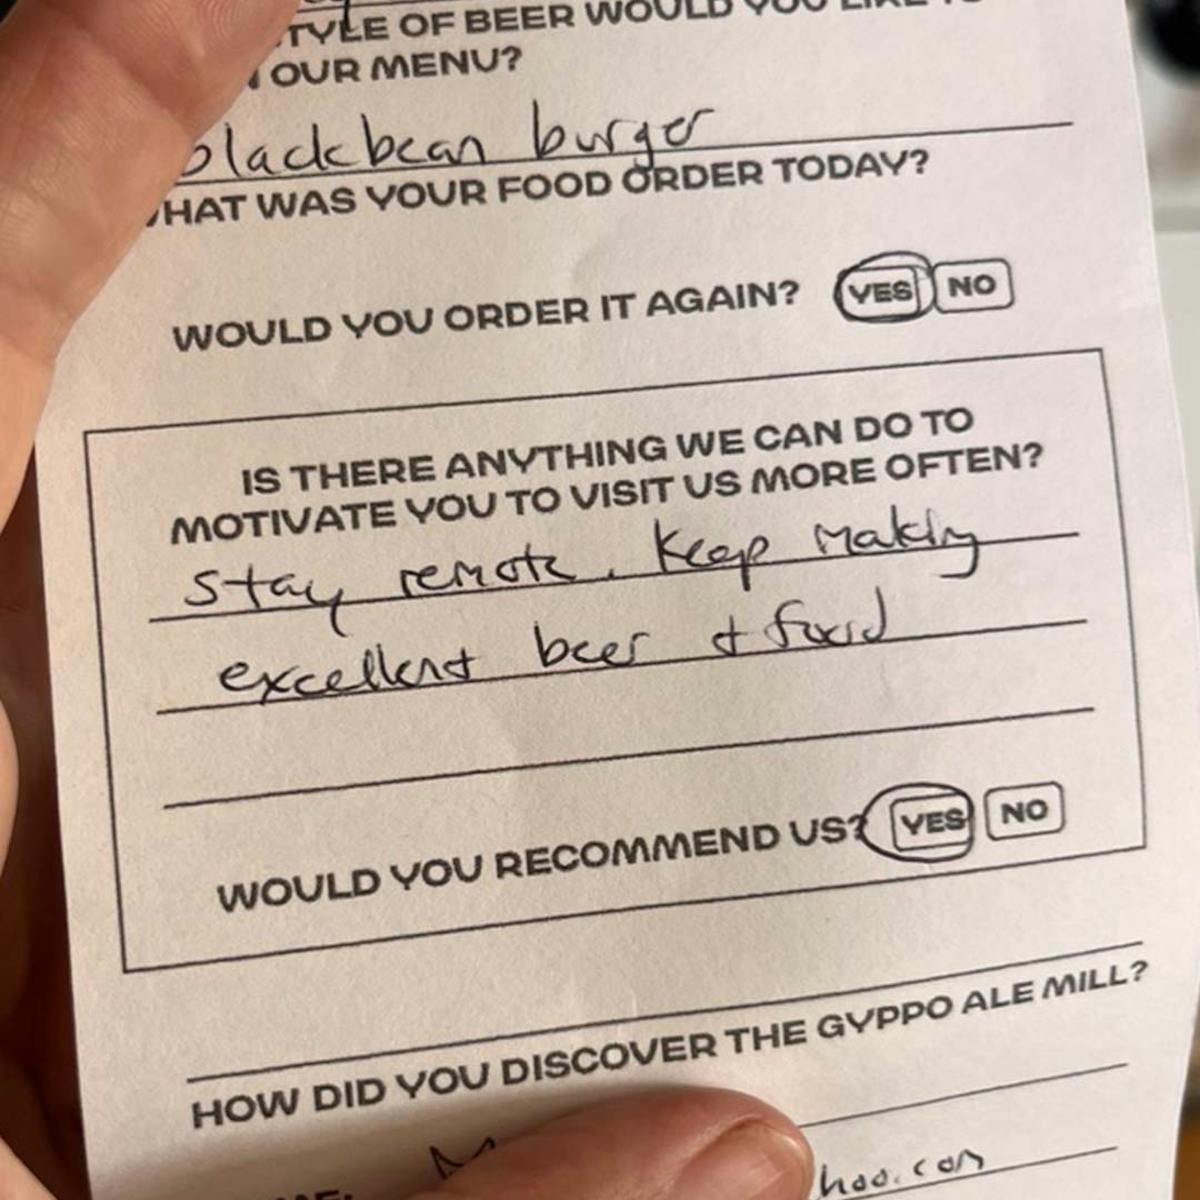 TYLE OF BEER WOULD YOU LIKE TO
OUR MENU?
blackbean burger
WHAT WAS YOUR FOOD ORDER TODAY?
WOULD YOU ORDER IT AGAIN? YES NO
IS THERE ANYTHING WE CAN DO TO
MOTIVATE YOU TO VISIT US MORE OFTEN?
stay remote. Keep making
excellent beer + food
WOULD YOU RECOMMEND US? YES NO
HOW DID YOU DISCOVER THE GYPPO ALE MILL?
hoo.com